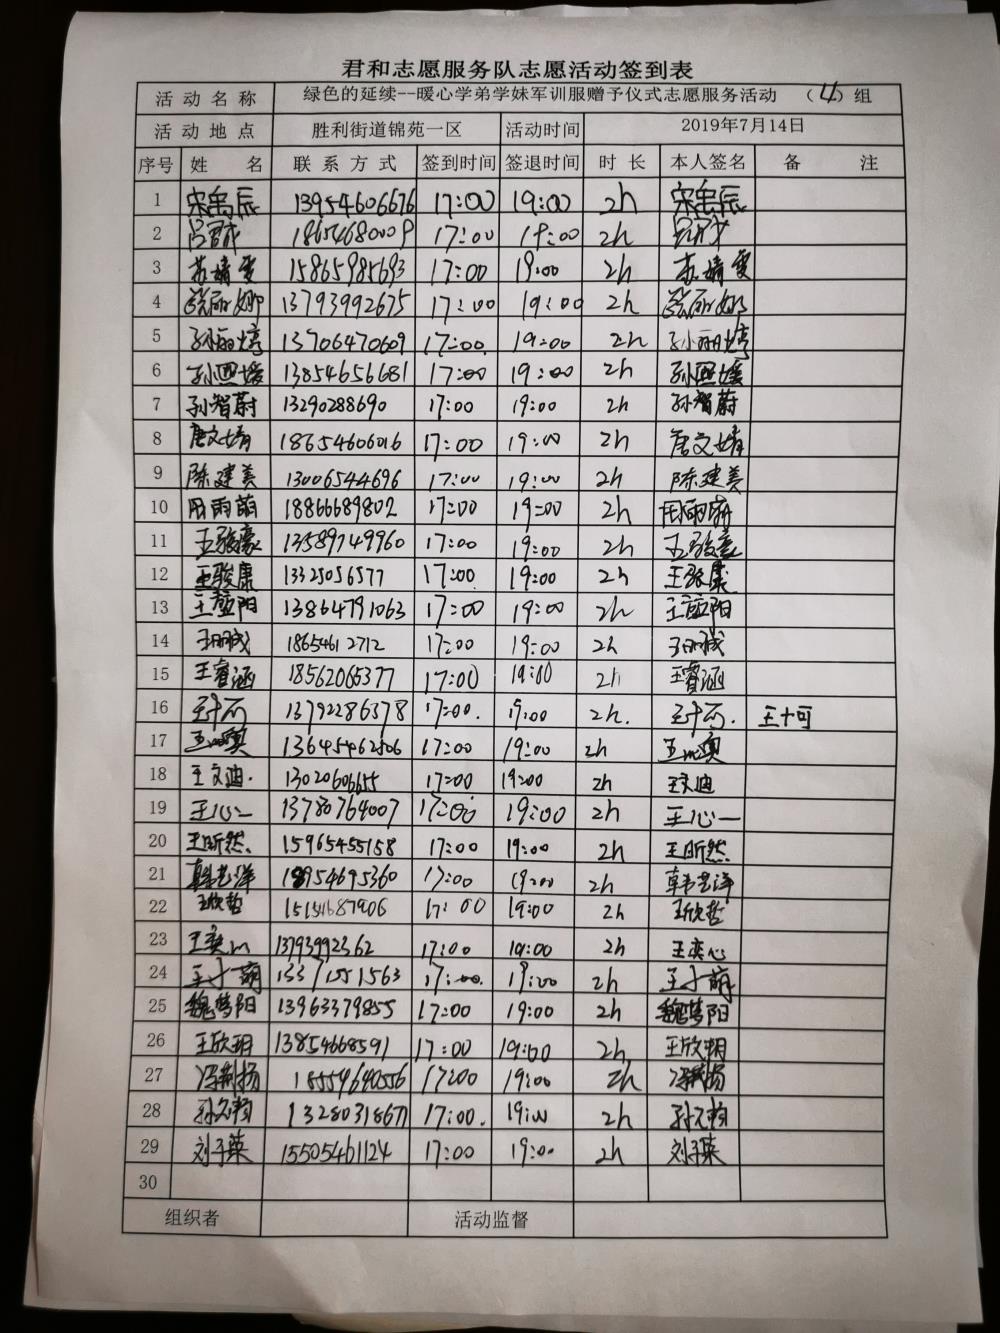 君和志愿服务队志愿活动签到表
活动名称 绿色的延续--暖心学弟学妹军训服赠予仪式志愿服务活动 （4）组
活动地点 胜利街道锦苑一区 活动时间 2019年7月14日
序号 姓名 联系方式 签到时间 签退时间 时长 本人签名 备注
1 宋禹辰 13954606676 17:00 19:00 2h 宋禹辰
2 18654680009 17:00 19:00 2h
3 苏婧雯 15865985693 17:00 19:00 2h 苏婧雯
4 张丽娜 13793992675 17:00 19:00 2h 张丽娜
5 孙雨婷 13706470609 17:00 19:00 2h 孙雨婷
6 孙熙媛 13854656681 17:00 19:00 2h 孙熙媛
7 孙智蔚 13290288690 17:00 19:00 2h 孙智蔚
8 唐文婧 18654606016 17:00 19:00 2h 唐文婧
9 陈建美 13006544696 17:00 19:00 2h 陈建美
10 田雨萌 18866689802 17:00 19:00 2h 田雨萌
11 王骏豪 13589749960 17:00 19:00 2h 王骏豪
12 王骏康 13325056577 17:00 19:00 2h 王骏康
13 13864791063 17:00 19:00 2h
14 18654612712 17:00 19:00 2h
15 王睿涵 18562065377 17:00 19:00 2h 王睿涵
16 王十可 13792286378 17:00. 19:00 2h. 王十可. 王十可
17 13645462506 17:00 19:00 2h
18 王文迪. 13020606655 17:00 19:00 2h 王文迪
19 王心一 13780764007 17:00 19:00 2h 王心一
20 王昕然. 15965455158 17:00 19:00 2h 王昕然
21 韩艺洋 18954695360 17:00 19:00 2h 韩艺洋
22 王欣哲 15154687906 17:00 19:00 2h 王欣哲
23 王奕心 13793992362 17:00 19:00 2h 王奕心
24 王子萌 13371551563 17:00. 19:00 2h 王子萌
25 魏梦阳 13963379855 17:00 19:00 2h 魏梦阳
26 王欣玥 13854668591 17:00 19:00 2h 王欣玥
27 18554640556 17:00 19:00 2h
28 13280318671 17:00. 19:00 2h
29 刘子菜 15505461124 17:00 19:00 2h 刘子菜
30
组织者 活动监督